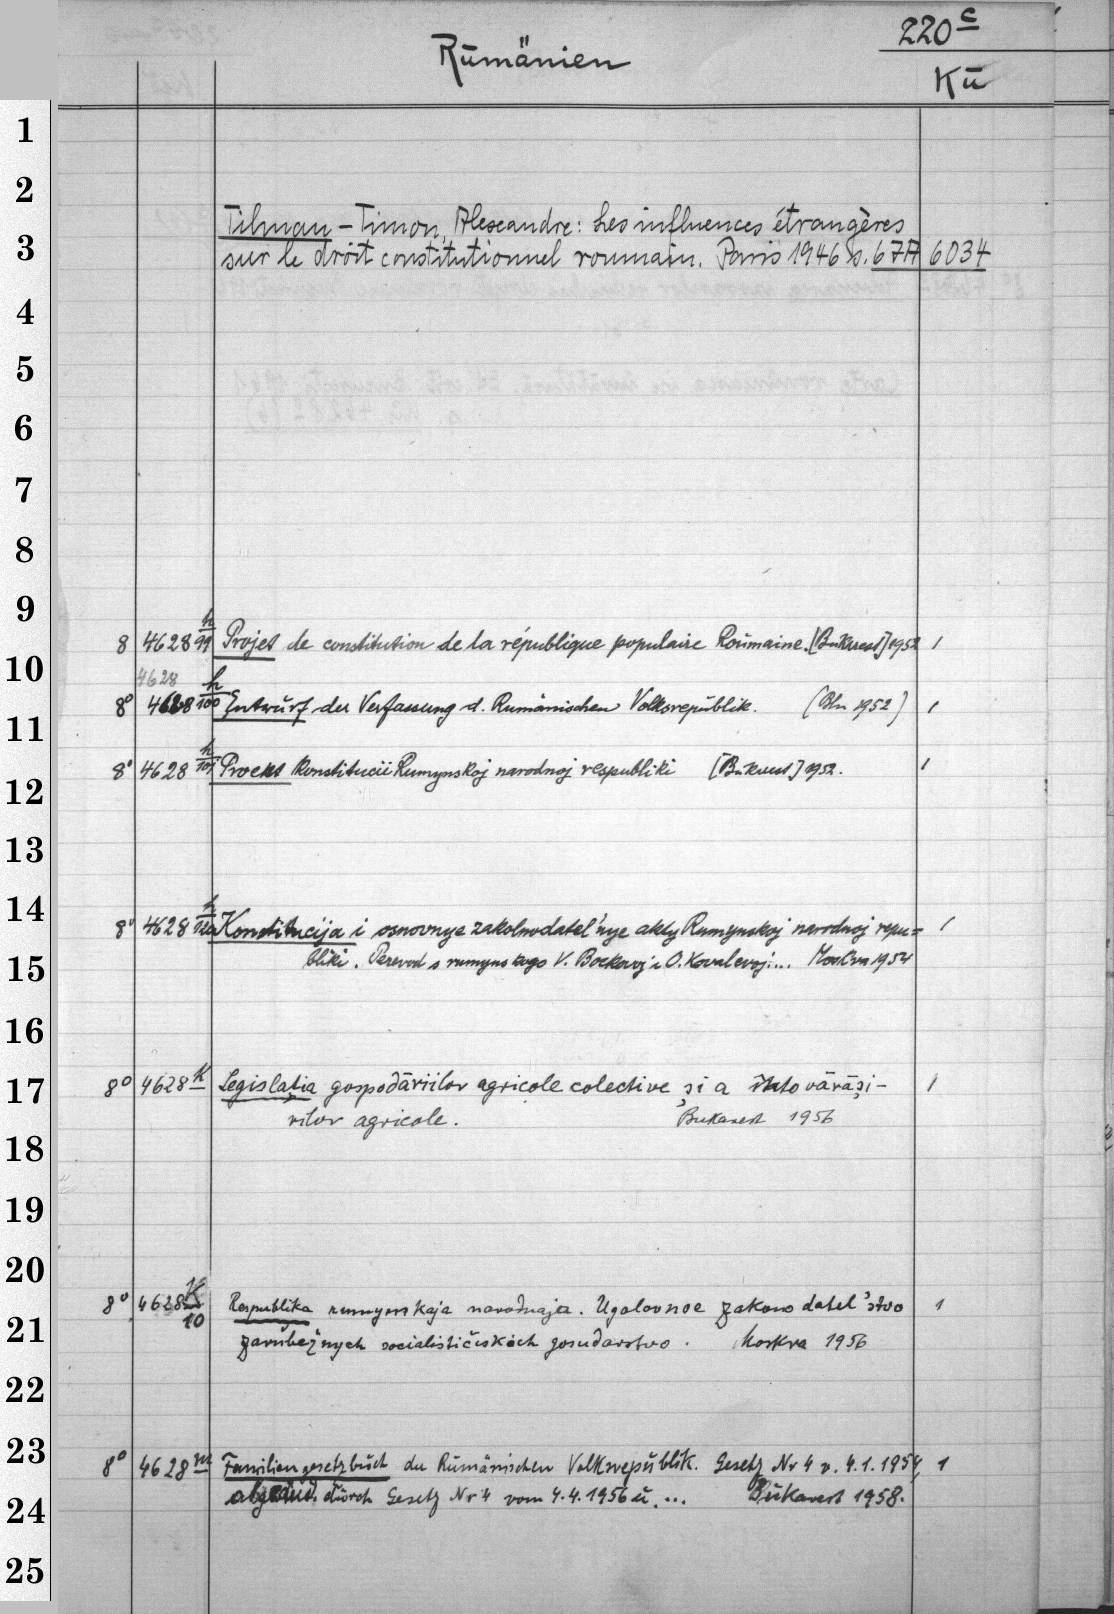 220 c
Rumänien
Ku
1
2
Tilman-Timon, Alexandre: Les influences étrangères
3
sur le droit constitutionnel roumain. Paris 1946 s. 67A 6034
4
5
6
7
8
9
8 4628 h/99 Projet de constitution de la république populaire Roumaine. [Bukarest] 1952 1
10
4628
8° 4628 h/100 Entwurf der Verfassung d. Rumänischen Volksrepublik. (Bln 1952) 1
11
8° 4628 h/101 Proekt Konstitucii Rumynskoj narodnoj respubliki [Bukarest] 1952. 1
12
13
14
8° 4628 h Konstitucija i osnovnye zakolnodatel'nye akty Rumynskoj narodnoj repu= 1
15
bliki. Perevod s rumynskogo V. Bockovoj i O. Kovalevoj... Moskva 1954
16
17
8° 4628 K Legislația gospodăriilor agricole colective și a întovărăși- 1
rilor agricole. Bukarest 1956
18
19
20
8° 4628 K/10 Respublika rumynskaja narodnaja. Ugolovnoe zakonodatel'stvo 1
21
zarubežnych socialističiskich gosudarstvo. Moskva 1956
22
23
8° 4628 m Familiengesetzbuch der Rumänischen Volksrepublik. Gesetz Nr 4 v. 4.1.1954, 1
24
abgeänd. durch Gesetz Nr 4 vom 4.4.1956 u. ... Bukarest 1958.
25